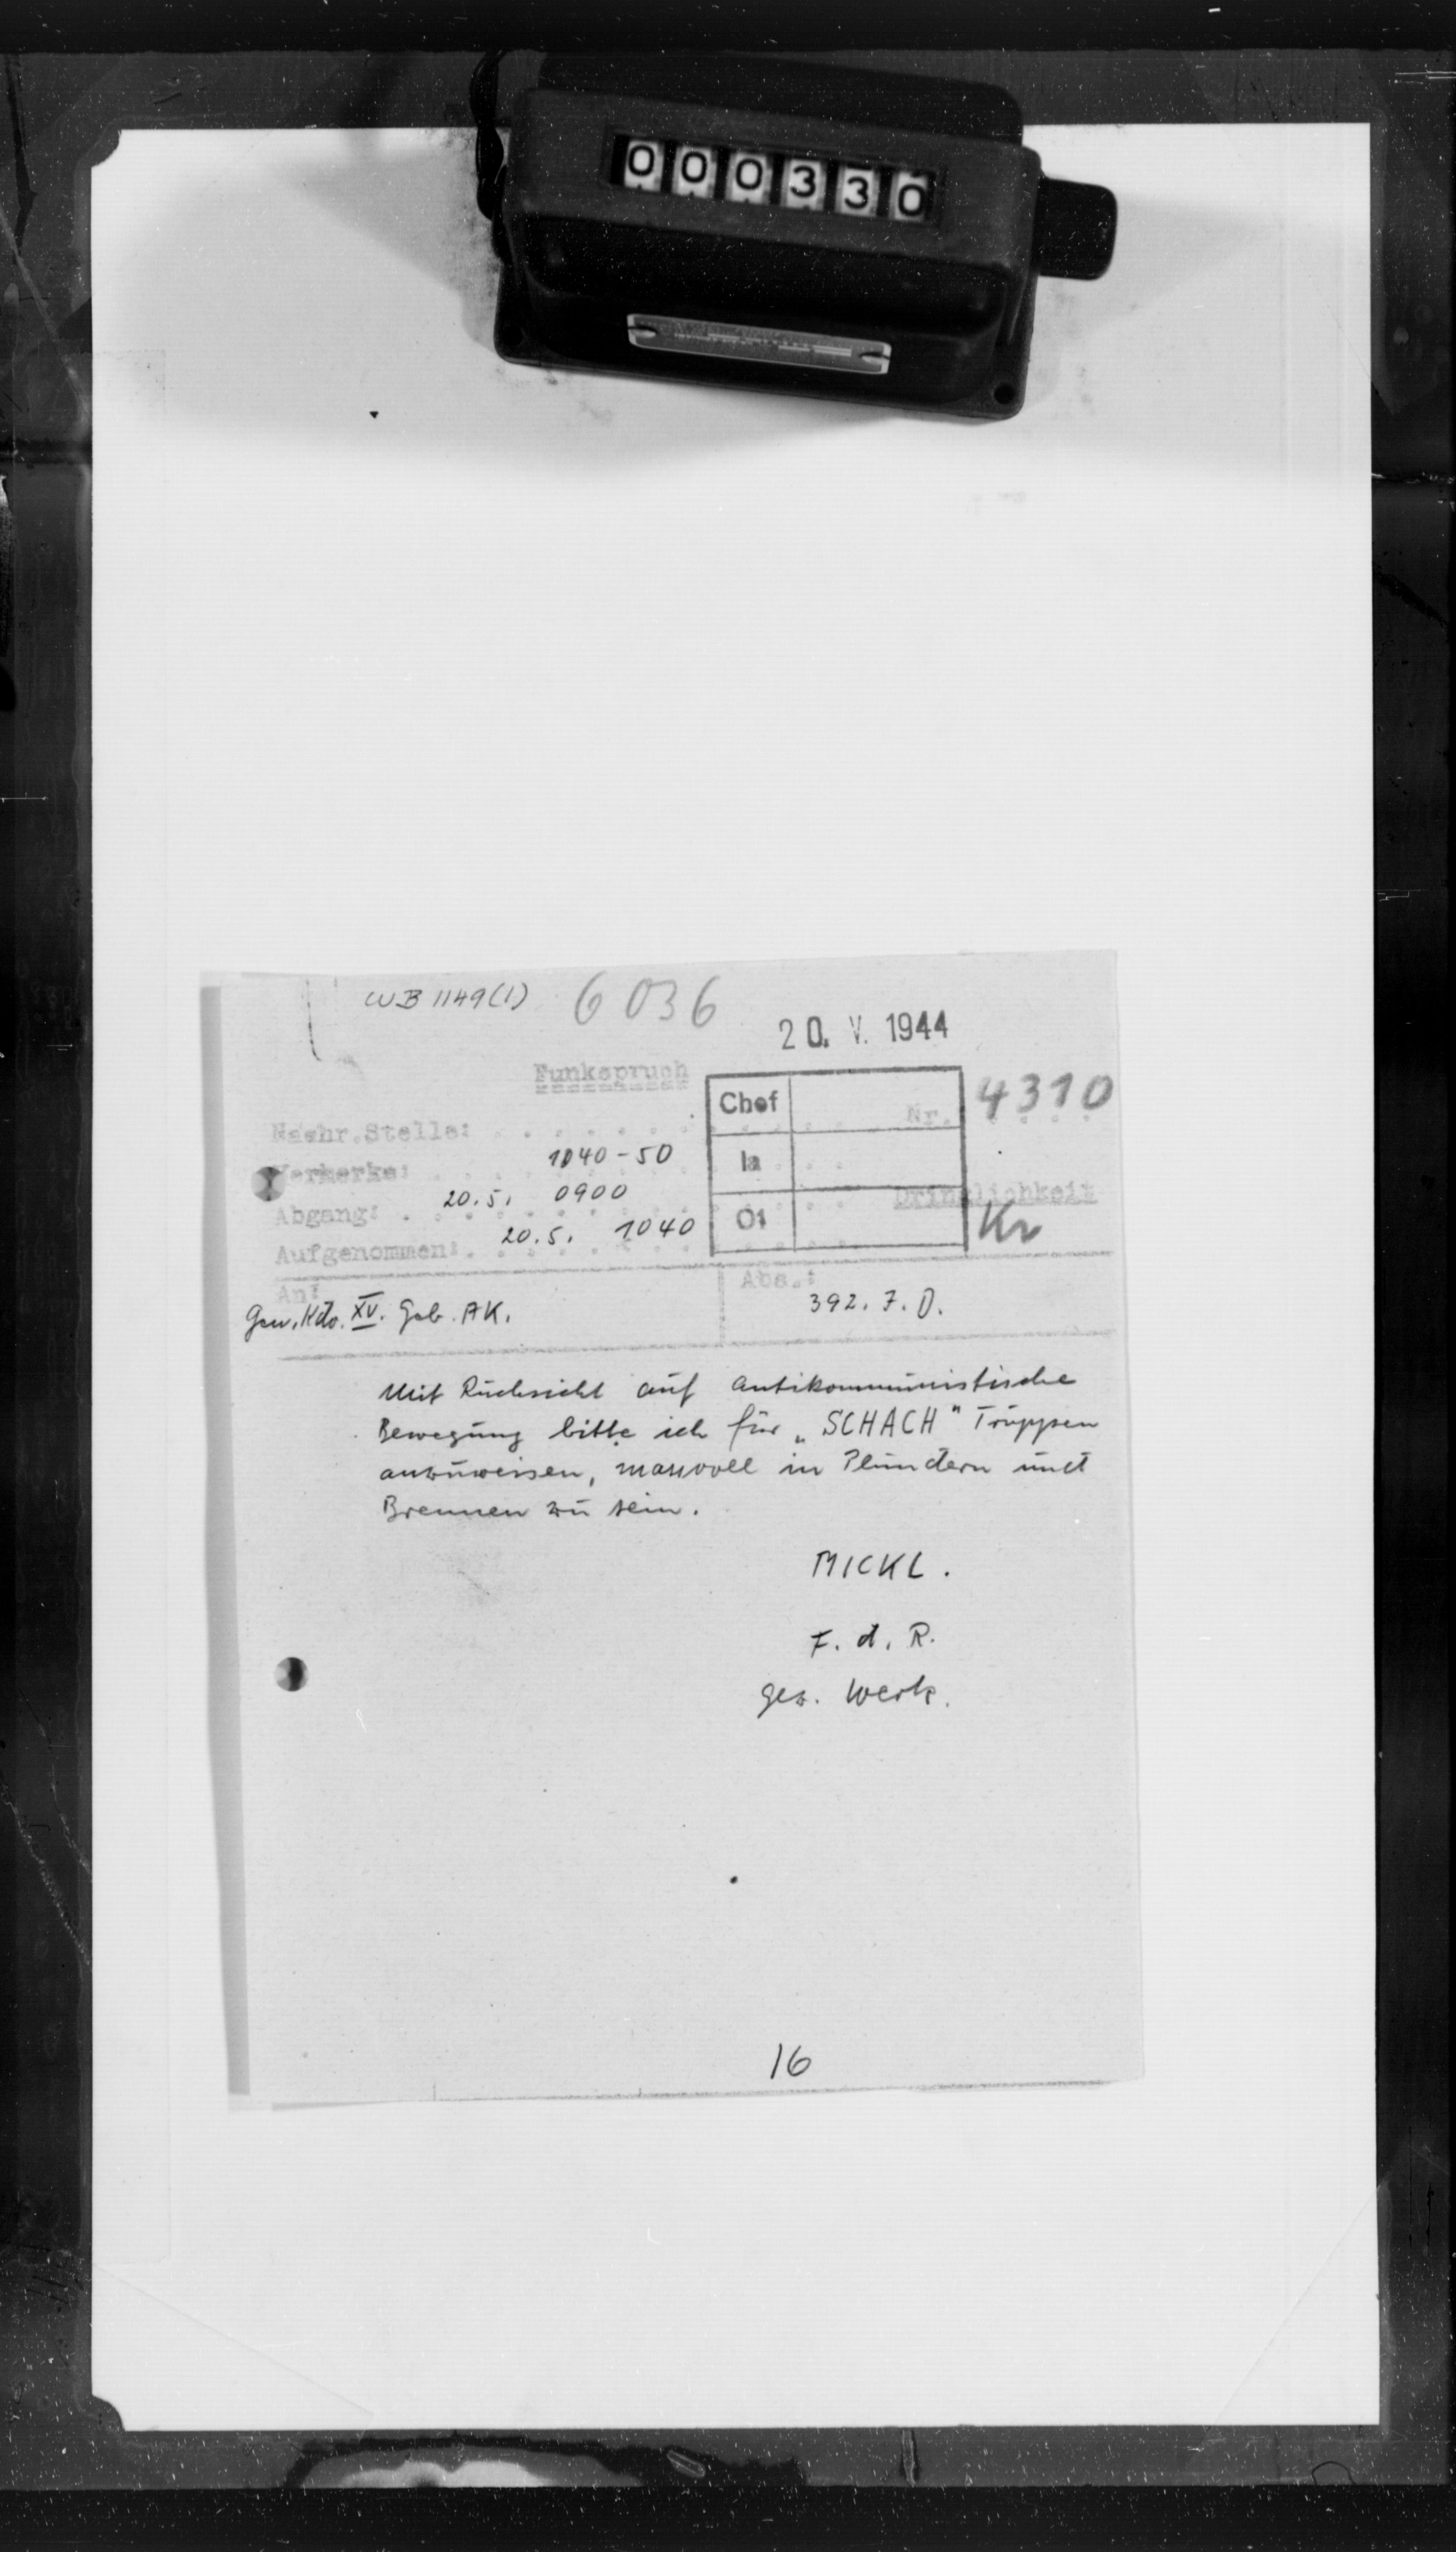 000330
WB 1149(1) 6036
20. V. 1944
Funkspruch
Chef
Nr. 4310
Nachr.Stelle:
Ia
Vermerke: 1040-50
Dringlichkeit
Abgang: 20.5. 0900
O1
Kr
Aufgenommen: 20.5. 1040
An:
Abs.:
Gen. Kdo. XV. Geb. AK.
392. J. D.
Mit Rücksicht auf antikommunistische
Bewegung bitte ich für „SCHACH" Truppen
anzuweisen, massvoll in Plündern und
Brennen zu sein.
MICKL.
F. d. R.
gez. Werk.
16